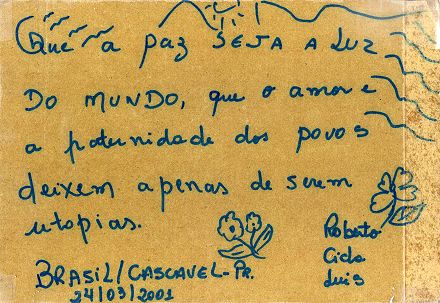 Que a paz SEJA A LUZ
DO MUNDO, que o amor e
a fraternidade dos povos
deixem apenas de serem
utopias.
Roberto
Cida
Luis
BRASIL/CASCAVEL-PR.
24/03/2001